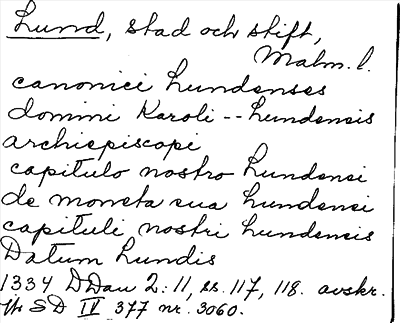 Lund, stad och stift,
Malm. l.
canonici Lundenses
domini Karoli -- Lundensis
archiepiscopi
capitulo nostro Lundensi
de moneta sua Lundensi
capituli nostri Lundensis
Datum Lundis
1334 DDan 2:11, ss. 117, 118. avskr.
SD IV 377 nr. 3060.